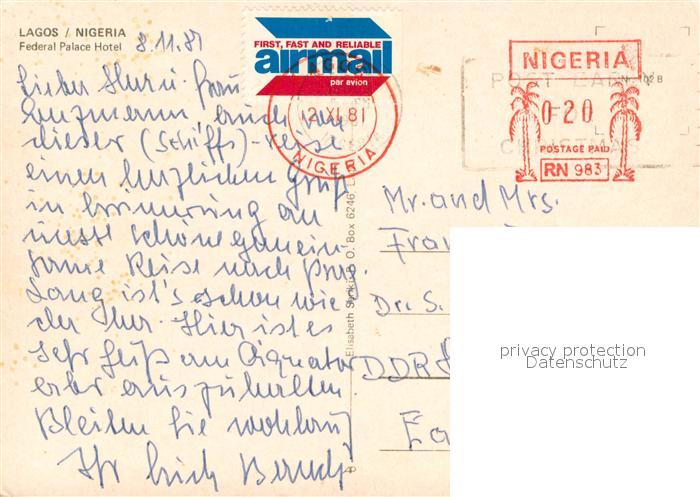 LAGOS / NIGERIA
Federal Palace Hotel 8.11.81
FIRST, FAST AND RELIABLE
airmail
par avion
LAGOS
12 XI. 81
NIGERIA
NIGERIA
POST EARLY
N 102 B
0-20
CHRISTMAS
POSTAGE PAID
RN 983
Lieber Herr u. Frau
auch von
dieser (Schiffs)-Reise
einen herzlichen Gruß
in Erinnerung an
unsere schöne gemein-
same Reise nach
Lang ist's schon wie
der her. Hier ist es
sehr heiß am Äquator
aber auszuhalten.
Bleiben Sie wohlauf
Ihr Erich
Mr. and Mrs.
Dr. S.
DDR
O. Box 6246
Elisabeth
privacy protection
Datenschutz